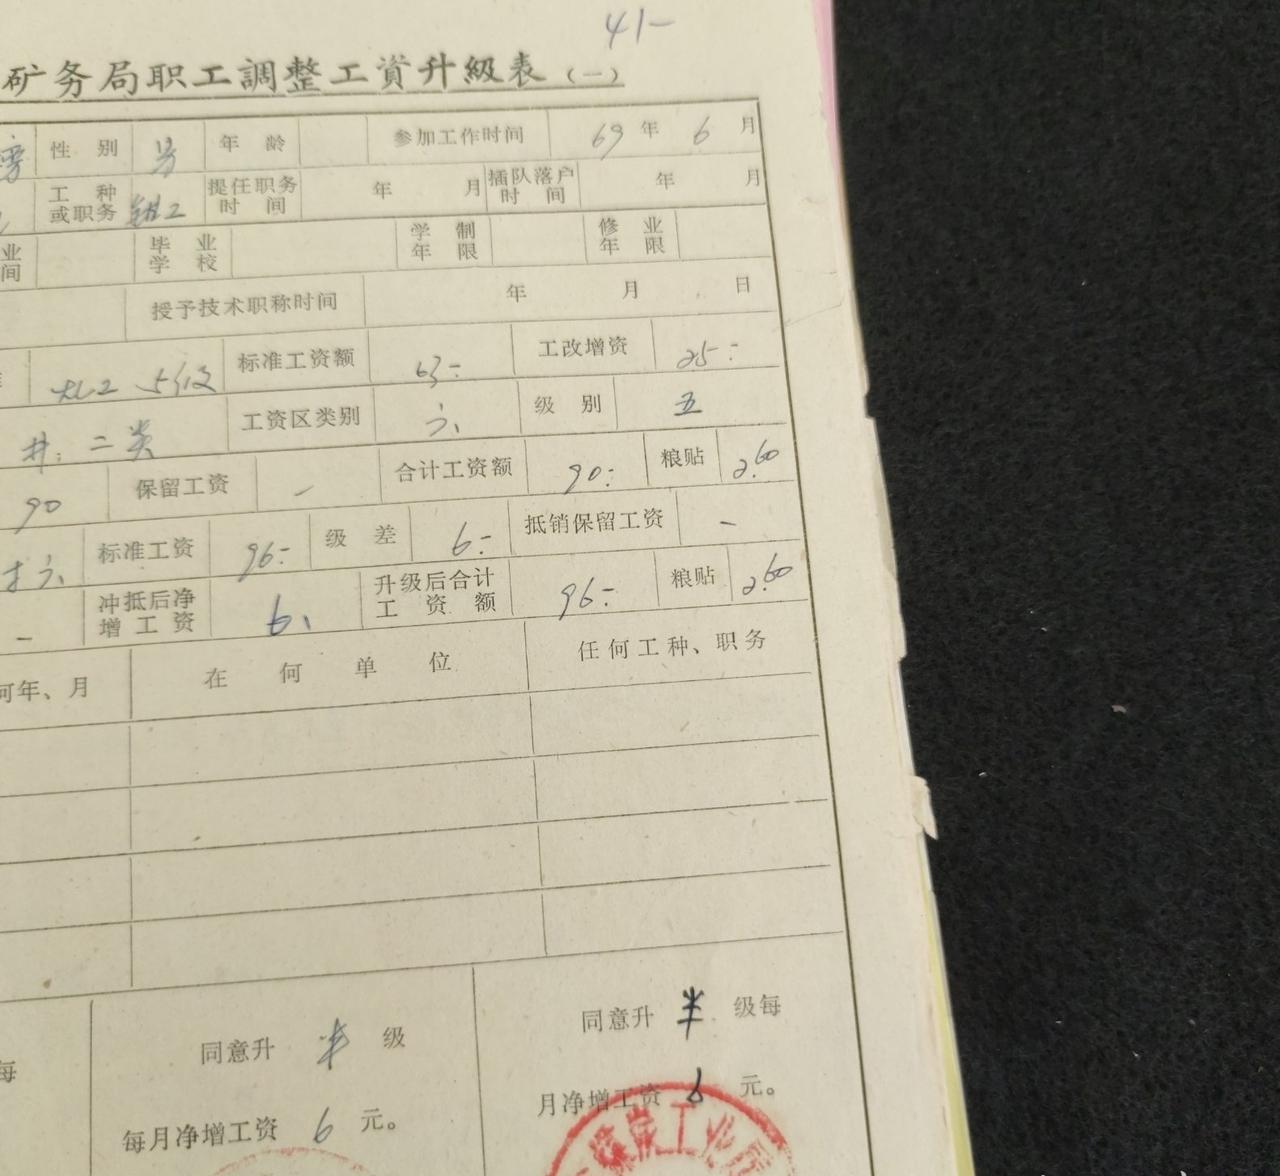 41-
矿务局职工調整工資升級表（一）
性别 男 年龄 参加工作时间 69年6月
工种或职务 钳工 提任职务时间 年 月 插队落户时间 年 月
业间 毕业学校 学制年限 修业年限
授予技术职称时间 年 月 日
标准工资额 63- 工改增资 25-
井. 二类 工资区类别 六 级别 五
90 保留工资 - 合计工资额 90- 粮贴 2.60
六 标准工资 96- 级差 6- 抵销保留工资 -
- 冲抵后净增工资 6. 升级后合计工资额 96- 粮贴 2.60
何年、月 在何单位 任何工种、职务
同意升 半 级 同意升 半 级每
每 每月净增工资 6 元。 月净增工资 6 元。
煤炭工业